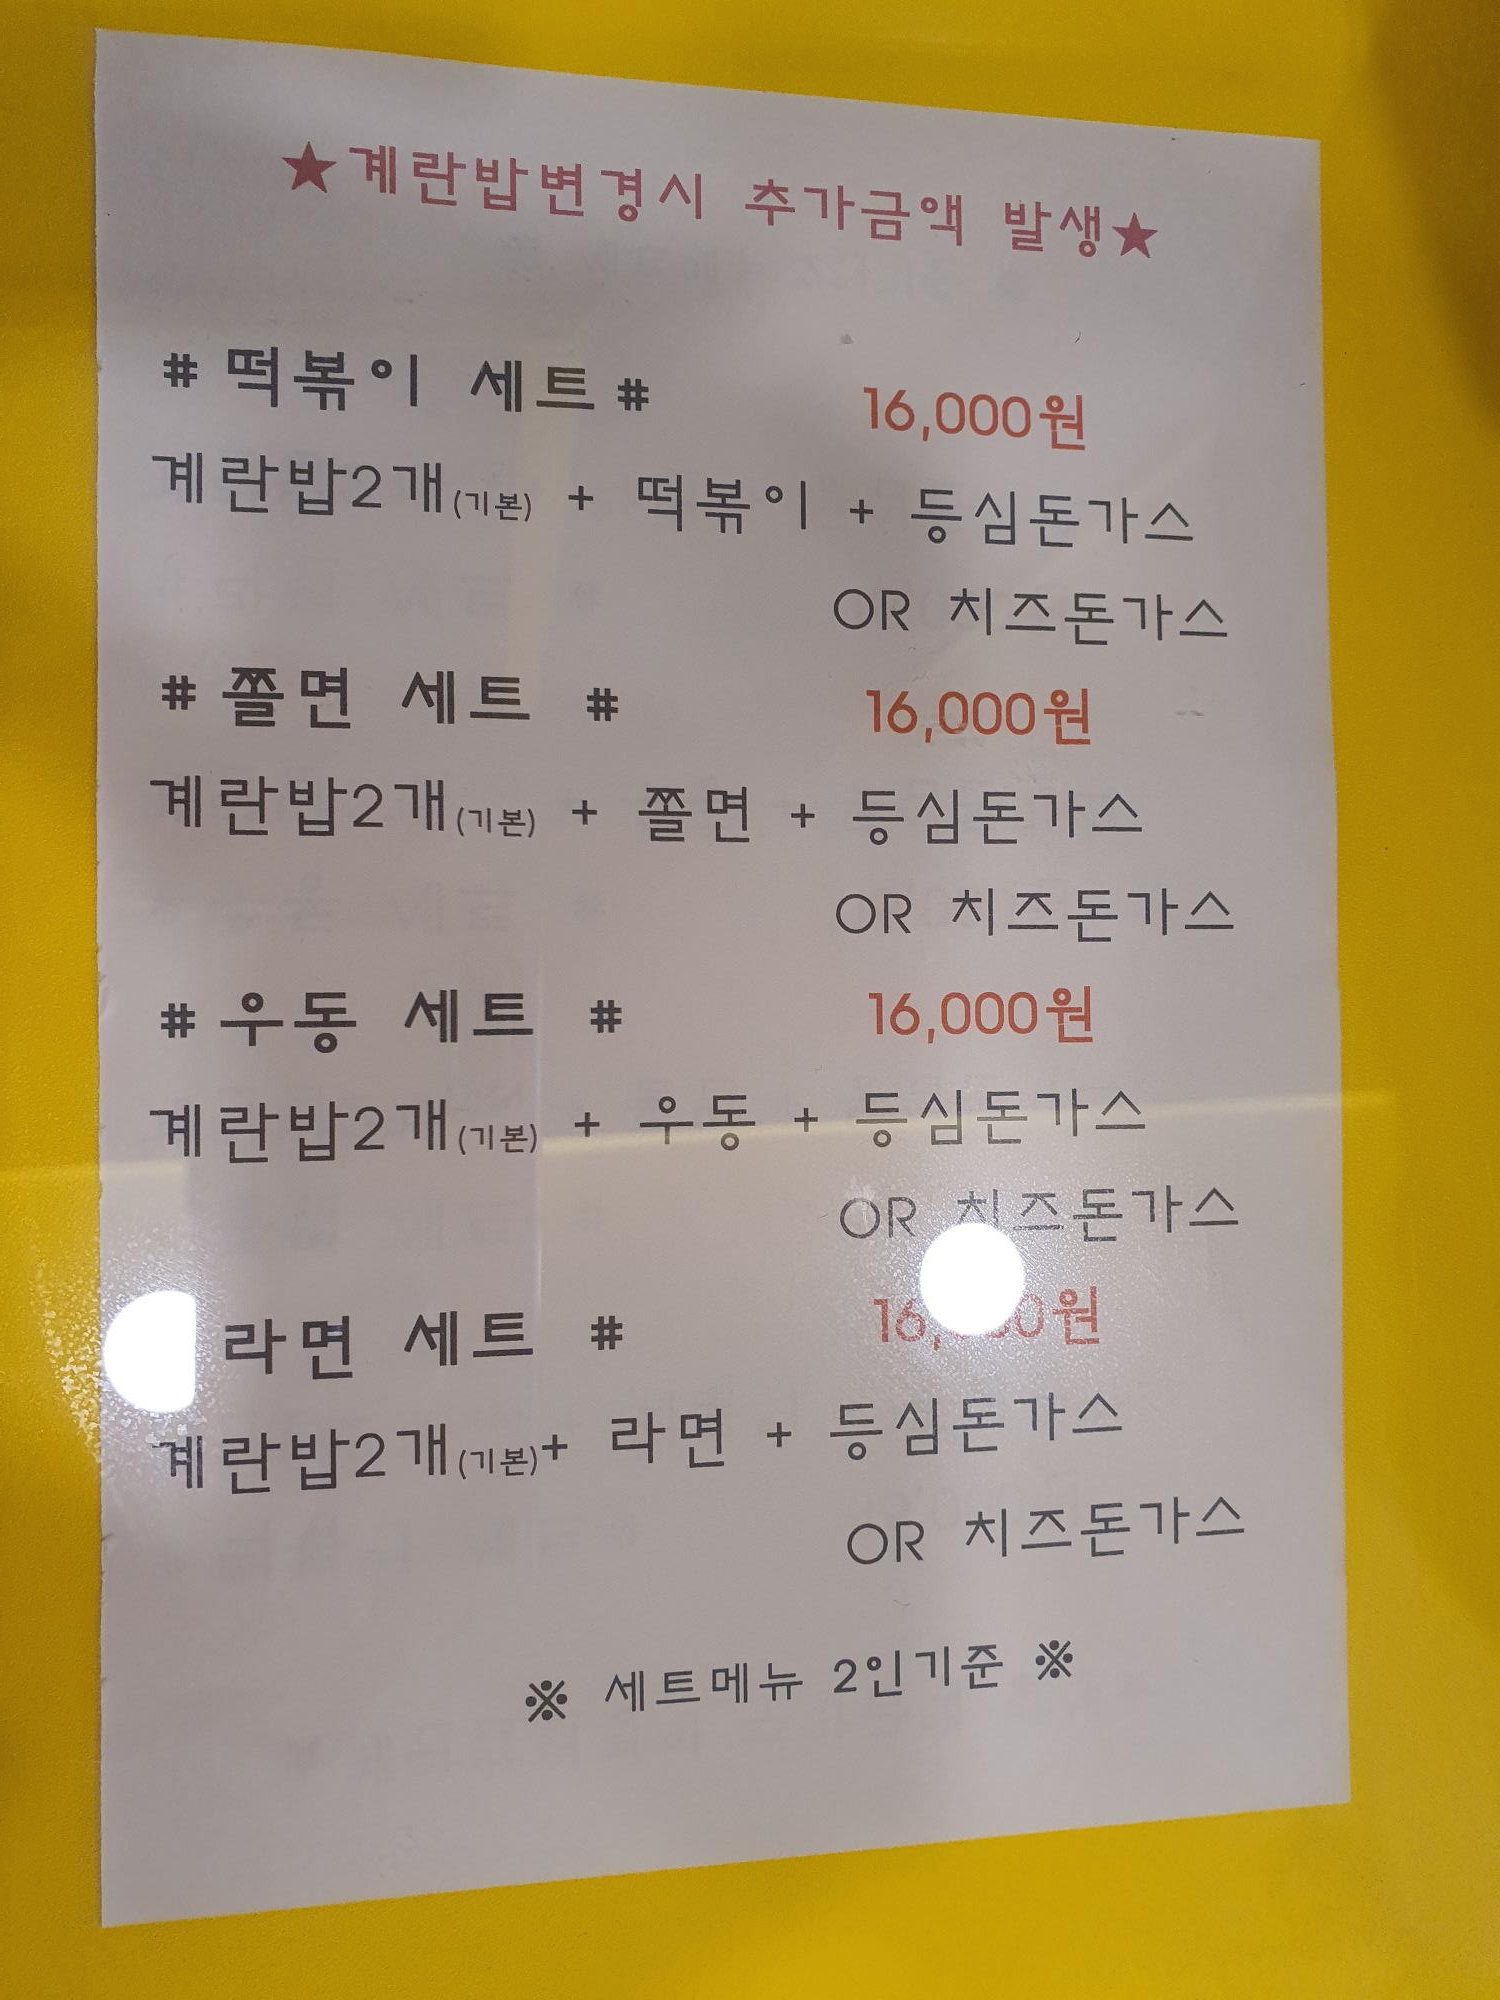 ★계란밥변경시 추가금액 발생★
# 떡볶이 세트 # 16,000원
계란밥2개(기본) + 떡볶이 + 등심돈가스
OR 치즈돈가스
# 쫄면 세트 # 16,000원
계란밥2개(기본) + 쫄면 + 등심돈가스
OR 치즈돈가스
# 우동 세트 # 16,000원
계란밥2개(기본) + 우동 + 등심돈가스
OR 치즈돈가스
라면 세트 # 16,000원
계란밥2개(기본)+ 라면 + 등심돈가스
OR 치즈돈가스
※ 세트메뉴 2인기준 ※